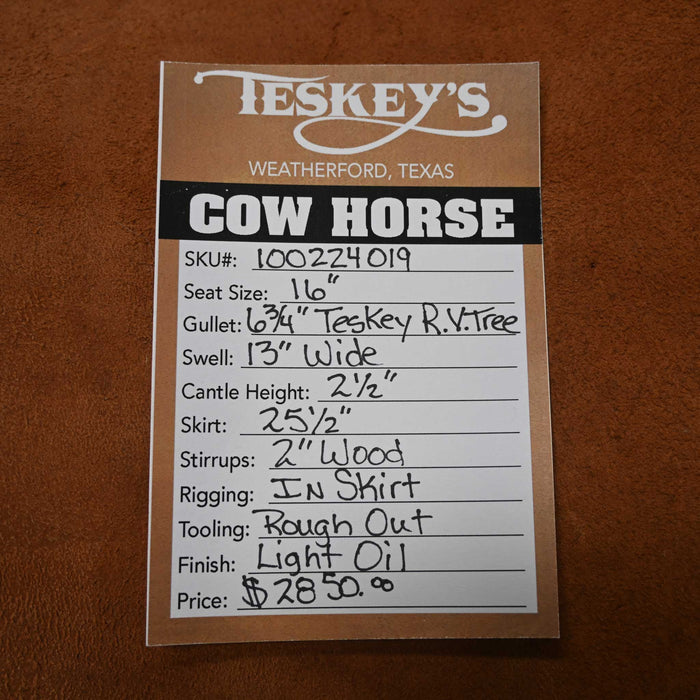 TESKEY'S
WEATHERFORD, TEXAS
COW HORSE
SKU#: 100224019
Seat Size: 16"
Gullet: 6 3/4" Teskey R.V. Tree
Swell: 13" Wide
Cantle Height: 2 1/2"
Skirt: 25 1/2"
Stirrups: 2" Wood
Rigging: IN Skirt
Tooling: Rough Out
Finish: Light Oil
Price: $2850.00